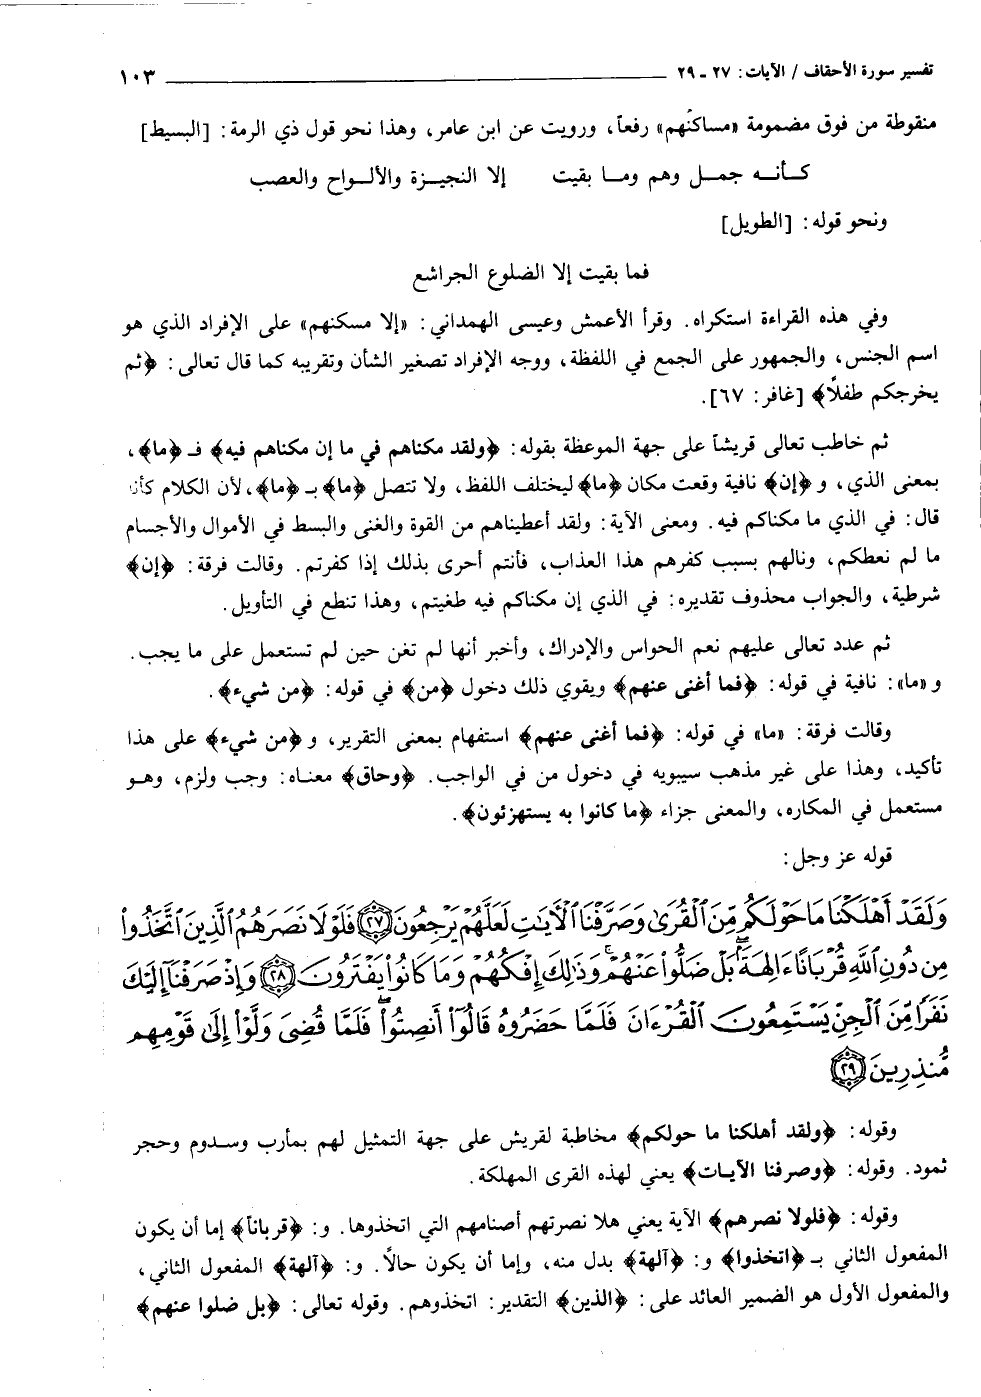 تفسير سورة الأحقاف / الآيات: ٢٧ ـ ٢٩ ١٠٣
منقوطة من فوق مضمومة «مساكنُهم» رفعاً، ورويت عن ابن عامر، وهذا نحو قول ذي الرمة: [البسيط]
كـأنـه جمـل وهم ومـا بقيت إلا النحيـزة والألـواح والعصب
ونحو قوله: [الطويل]
فما بقيت إلا الضلوع الجراشع
وفي هذه القراءة استكراه. وقرأ الأعمش وعيسى الهمداني: «إلا مسكنهم» على الإفراد الذي هو
اسم الجنس، والجمهور على الجمع في اللفظة، ووجه الإفراد تصغير الشأن وتقريبه كما قال تعالى: ﴿ثم
يخرجكم طفلاً﴾ [غافر: ٦٧].
ثم خاطب تعالى قريشاً على جهة الموعظة بقوله: ﴿ولقد مكناهم في ما إن مكناهم فيه﴾ فـ ﴿ما﴾،
بمعنى الذي، و ﴿إن﴾ نافية وقعت مكان ﴿ما﴾ ليختلف اللفظ، ولا تتصل ﴿ما﴾ بـ ﴿ما﴾، لأن الكلام كأنه
قال: في الذي ما مكناكم فيه. ومعنى الآية: ولقد أعطيناهم من القوة والغنى والبسط في الأموال والأجسام
ما لم نعطكم، ونالهم بسبب كفرهم هذا العذاب، فأنتم أحرى بذلك إذا كفرتم. وقالت فرقة: ﴿إن﴾
شرطية، والجواب محذوف تقديره: في الذي إن مكناكم فيه طغيتم، وهذا تنطع في التأويل.
ثم عدد تعالى عليهم نعم الحواس والإدراك، وأخبر أنها لم تغن حين لم تستعمل على ما يجب.
و «ما»: نافية في قوله: ﴿فما أغنى عنهم﴾ ويقوي ذلك دخول ﴿من﴾ في قوله: ﴿من شيء﴾.
وقالت فرقة: «ما» في قوله: ﴿فما أغنى عنهم﴾ استفهام بمعنى التقرير، و ﴿من شيء﴾ على هذا
تأكيد، وهذا على غير مذهب سيبويه في دخول من في الواجب. ﴿وحاق﴾ معناه: وجب ولزم، وهـو
مستعمل في المكاره، والمعنى جزاء ﴿ما كانوا به يستهزئون﴾.
قوله عز وجل:
وَلَقَدْ أَهْلَكْنَا مَا حَوْلَكُم مِّنَ ٱلْقُرَىٰ وَصَرَّفْنَا ٱلْأَيَٰتِ لَعَلَّهُمْ يَرْجِعُونَ ﴿٢٧﴾ فَلَوْلَا نَصَرَهُمُ ٱلَّذِينَ ٱتَّخَذُوا۟
مِن دُونِ ٱللَّهِ قُرْبَانًا ءَالِهَةًۢ ۖ بَلْ ضَلُّوا۟ عَنْهُمْ ۚ وَذَٰلِكَ إِفْكُهُمْ وَمَا كَانُوا۟ يَفْتَرُونَ ﴿٢٨﴾ وَإِذْ صَرَفْنَآ إِلَيْكَ
نَفَرًا مِّنَ ٱلْجِنِّ يَسْتَمِعُونَ ٱلْقُرْءَانَ فَلَمَّا حَضَرُوهُ قَالُوٓا۟ أَنصِتُوا۟ ۖ فَلَمَّا قُضِىَ وَلَّوْا۟ إِلَىٰ قَوْمِهِم
مُّنذِرِينَ ﴿٢٩﴾
وقوله: ﴿ولقد أهلكنا ما حولكم﴾ مخاطبة لقريش على جهة التمثيل لهم بمأرب وسـدوم وحجر
ثمود. وقوله: ﴿وصرفنا الآيـات﴾ يعني لهذه القرى المهلكة.
وقوله: ﴿فلولا نصرهم﴾ الآية يعني هلا نصرتهم أصنامهم التي اتخذوها. و: ﴿قرباناً﴾ إما أن يكون
المفعول الثاني بـ ﴿اتخذوا﴾ و: ﴿آلهة﴾ بدل منه، وإما أن يكون حالاً. و: ﴿آلهة﴾ المفعول الثاني،
والمفعول الأول هو الضمير العائد على: ﴿الذين﴾ التقدير: اتخذوهم. وقوله تعالى: ﴿بل ضلوا عنهم﴾